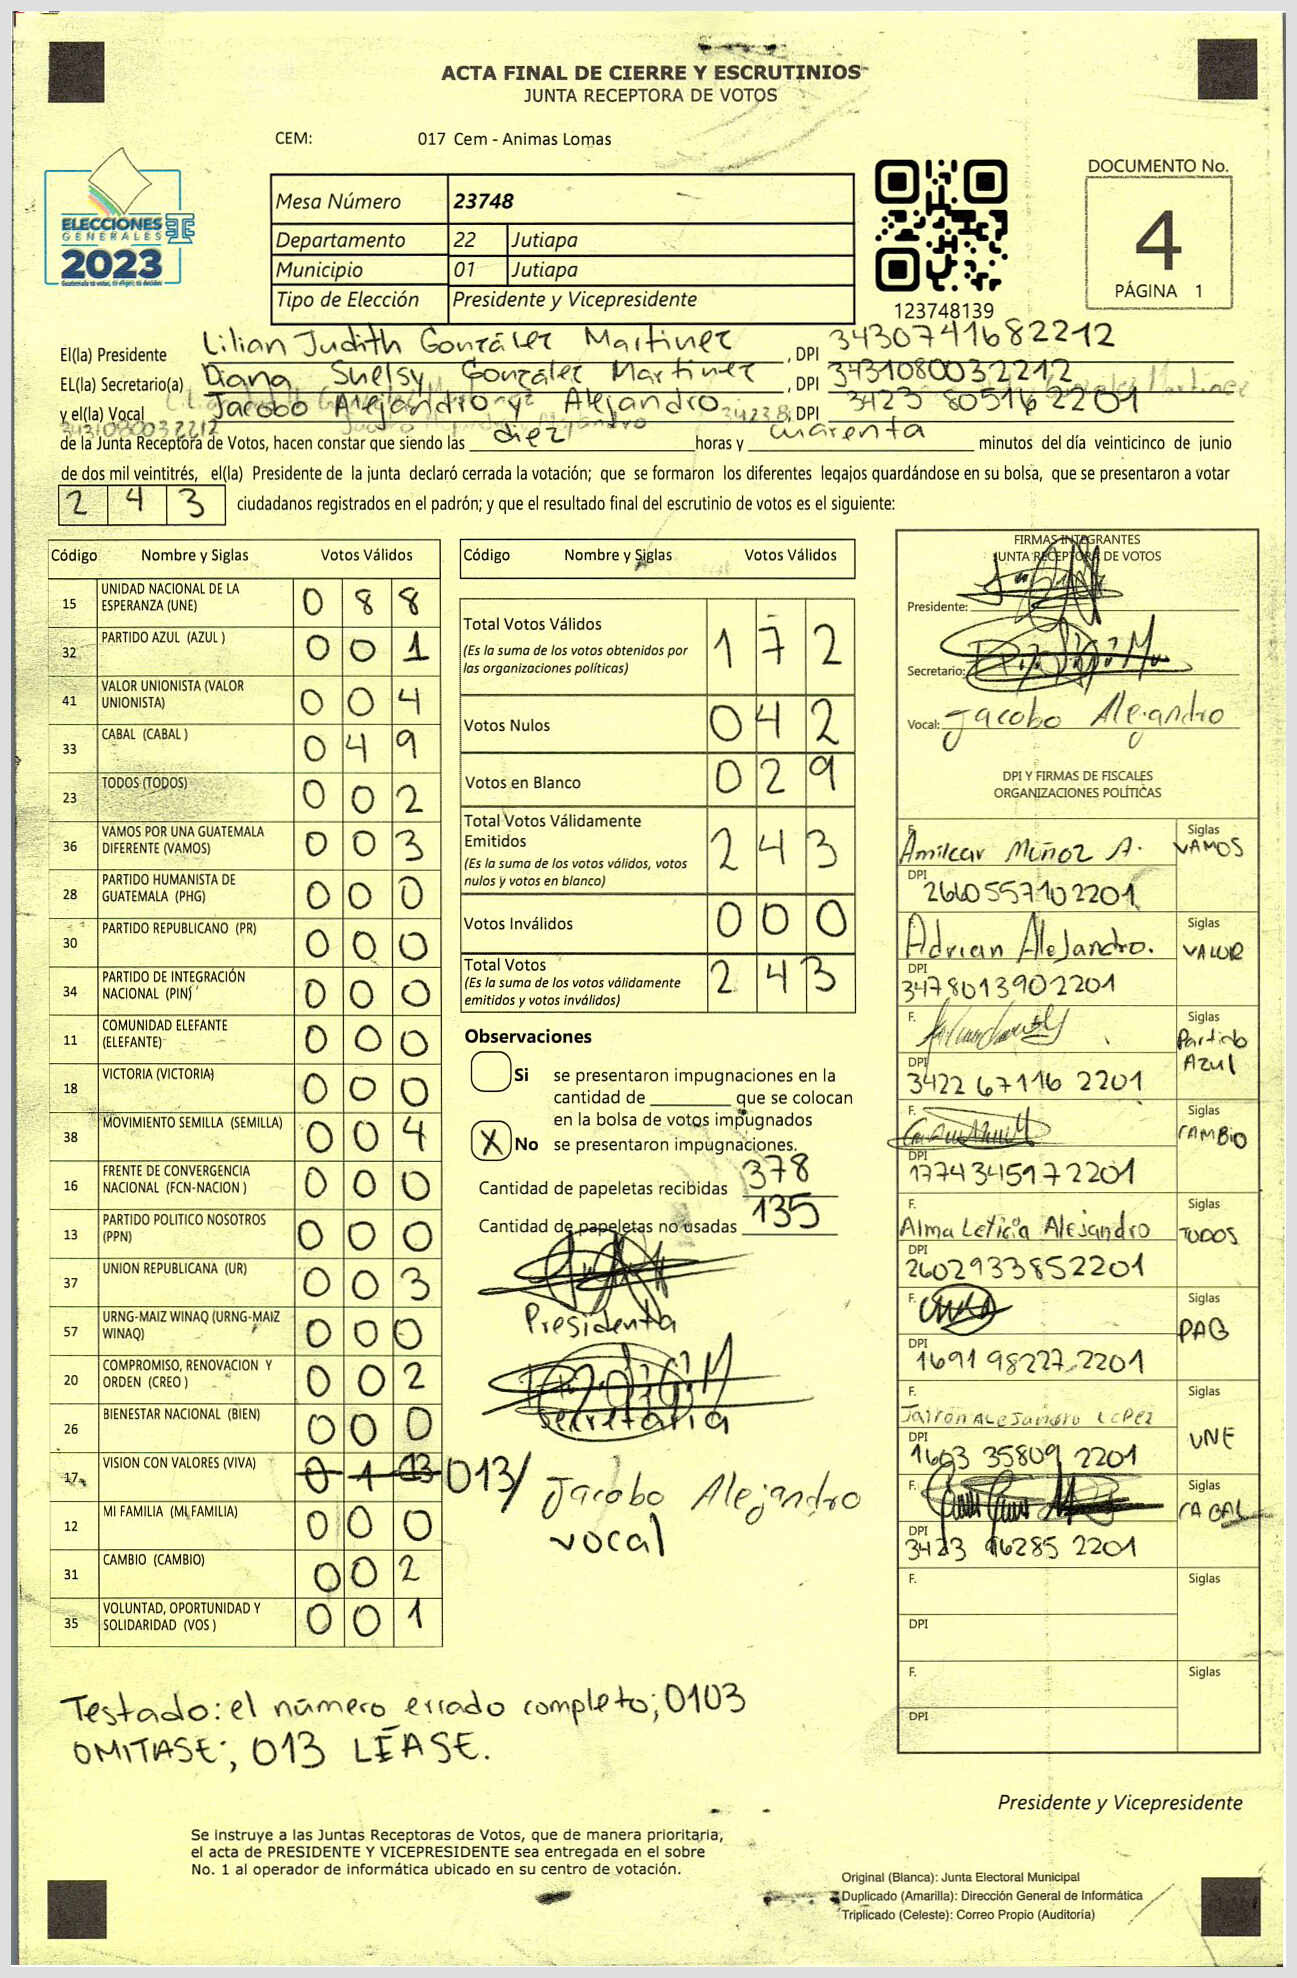 ACTA FINAL DE CIERRE Y ESCRUTINIOS
JUNTA RECEPTORA DE VOTOS
CEM: 017 Cem - Animas Lomas
ELECCIONES
GENERALES
2023
Mesa Número 23748
Departamento 22 Jutiapa
Municipio 01 Jutiapa
Tipo de Elección Presidente y Vicepresidente
123748139
DOCUMENTO No.
4
PÁGINA 1
El(la) Presidente Lilian Judith González Martinez, DPI 3430741682212
EL(la) Secretario(a) Diana Shelsy González Martinez, DPI 3431080032212
y el(la) Vocal Jacobo Alejandro y Alejandro, DPI 3423 80516 2201
de la Junta Receptora de Votos, hacen constar que siendo las diez horas y cuarenta minutos del día veinticinco de junio
de dos mil veintitrés, el(la) Presidente de la junta declaró cerrada la votación; que se formaron los diferentes legajos guardándose en su bolsa, que se presentaron a votar
243 ciudadanos registrados en el padrón; y que el resultado final del escrutinio de votos es el siguiente:
Código Nombre y Siglas Votos Válidos
15 UNIDAD NACIONAL DE LA ESPERANZA (UNE) 0 8 8
32 PARTIDO AZUL (AZUL ) 0 0 1
41 VALOR UNIONISTA (VALOR UNIONISTA) 0 0 4
33 CABAL (CABAL ) 0 4 9
23 TODOS (TODOS) 0 0 2
36 VAMOS POR UNA GUATEMALA DIFERENTE (VAMOS) 0 0 3
28 PARTIDO HUMANISTA DE GUATEMALA (PHG) 0 0 0
30 PARTIDO REPUBLICANO (PR) 0 0 0
34 PARTIDO DE INTEGRACIÓN NACIONAL (PIN) 0 0 0
11 COMUNIDAD ELEFANTE (ELEFANTE) 0 0 0
18 VICTORIA (VICTORIA) 0 0 0
38 MOVIMIENTO SEMILLA (SEMILLA) 0 0 4
16 FRENTE DE CONVERGENCIA NACIONAL (FCN-NACION ) 0 0 0
13 PARTIDO POLITICO NOSOTROS (PPN) 0 0 0
37 UNION REPUBLICANA (UR) 0 0 3
57 URNG-MAIZ WINAQ (URNG-MAIZ WINAQ) 0 0 0
20 COMPROMISO, RENOVACION Y ORDEN (CREO ) 0 0 2
26 BIENESTAR NACIONAL (BIEN) 0 0 0
17 VISION CON VALORES (VIVA) 013/ Jacobo Alejandro
vocal
12 MI FAMILIA (MI FAMILIA) 0 0 0
31 CAMBIO (CAMBIO) 0 0 2
35 VOLUNTAD, OPORTUNIDAD Y SOLIDARIDAD (VOS ) 0 0 1
Código Nombre y Siglas Votos Válidos
Total Votos Válidos 1 7 2
(Es la suma de los votos obtenidos por
las organizaciones políticas)
Votos Nulos 0 4 2
Votos en Blanco 0 2 9
Total Votos Válidamente
Emitidos 2 4 3
(Es la suma de los votos válidos, votos
nulos y votos en blanco)
Votos Inválidos 0 0 0
Total Votos 2 4 3
(Es la suma de los votos válidamente
emitidos y votos inválidos)
Observaciones
Si se presentaron impugnaciones en la
cantidad de ________ que se colocan
en la bolsa de votos impugnados
X No se presentaron impugnaciones.
Cantidad de papeletas recibidas 378
Cantidad de papeletas no usadas 135
Presidenta
Secretaria
FIRMAS INTEGRANTES
JUNTA RECEPTORA DE VOTOS
Presidente:
Secretario:
Vocal: Jacobo Alejandro
DPI Y FIRMAS DE FISCALES
ORGANIZACIONES POLÍTICAS
F. Amilcar Muñoz A. Siglas VAMOS
DPI 2660557102201
Adrian Alejandro. Siglas VALOR
DPI 3478013902201
F. Siglas Partido Azul
DPI 3422 67116 2201
F. Siglas CAMBIO
DPI 1774345172201
F. Alma Leticia Alejandro Siglas TODOS
DPI 2602933852201
F. Siglas PAG
DPI 1691 98227 2201
F. Jairon Alejandro Lopez Siglas UNE
DPI 1603 35809 2201
F. Siglas CABAL
DPI 3423 96285 2201
F. Siglas
DPI
F. Siglas
DPI
Testado: el número errado completo; 0103
OMITASE; 013 LÉASE.
Presidente y Vicepresidente
Se instruye a las Juntas Receptoras de Votos, que de manera prioritaria,
el acta de PRESIDENTE Y VICEPRESIDENTE sea entregada en el sobre
No. 1 al operador de informática ubicado en su centro de votación.
Original (Blanca): Junta Electoral Municipal
Duplicado (Amarilla): Dirección General de Informática
Triplicado (Celeste): Correo Propio (Auditoría)